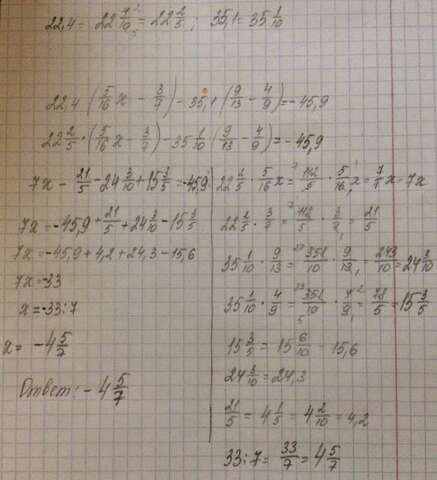 22,4 = 22 4/10 = 22 2/5 ; 35,1 = 35 1/10
22,4 (5/16 x - 3/7) - 35,1 (9/13 - 4/9) = -45,9
22 2/5 · (5/16 x - 3/7) - 35 1/10 (9/13 - 4/9) = -45,9
7x - 21/5 - 24 3/10 + 15 3/5 = -45,9
7x = -45,9 + 21/5 + 24 3/10 - 15 3/5
7x = -45,9 + 4,2 + 24,3 - 15,6
7x = -33
x = -33:7
x = -4 5/7
Ответ: -4 5/7
22 2/5 · 5/16 x = 112/5 · 5/16 x = 7/1 x = 7x
22 2/5 · 3/7 = 112/5 · 3/7 = 21/5
35 1/10 · 9/13 = 351/10 · 9/13 = 243/10 = 24 3/10
35 1/10 · 4/9 = 351/10 · 4/9 = 78/5 = 15 3/5
15 3/5 = 15 6/10 = 15,6
24 3/10 = 24,3
21/5 = 4 1/5 = 4 2/10 = 4,2
33:7 = 33/7 = 4 5/7